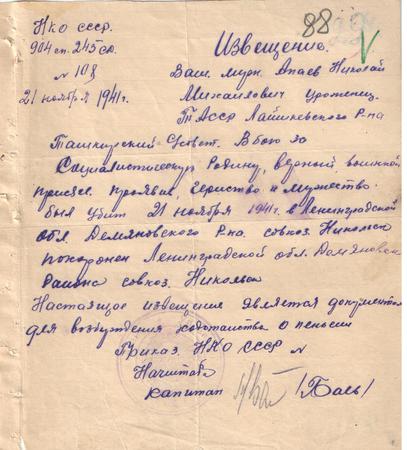 НКО СССР.
88
904 сп. 245 сд.
Извещение.
№ 108
Ваш муж. Апаев Николай
21 ноября 1941 г.
Михаилович Уроженец.
ТАССР Лаишевского Р-на
Ташкирский С/совет. В бою за
Социалистическую Родину, верный воинской
присяге. проявив, геройство и мужество.
был убит 21 ноября 1941 г. в Ленинградской
обл. Демяновского Р-на. совхоз. Никольск
похоронен Ленинградской обл. Демяновск
Района совхоз. Никольск
Настоящее извещение является документом
для возбуждения ходотайства о пенсии
Приказ. НКО СССР №
Начштаба
капитан /Баев/